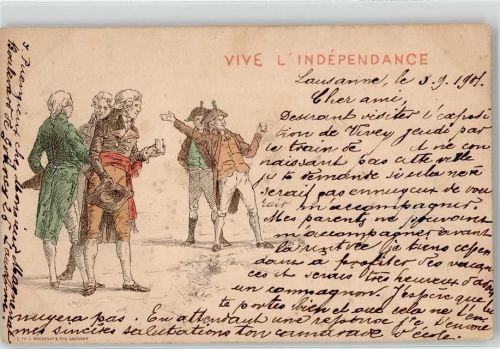 VIVE L'INDÉPENDANCE
Lausanne, le 3.9.1901.
Cher ami,
Désirant visiter l'exposi
tion de Vevey jeudi par
le train de et ne con
naissant pas cette ville
je te demande si cela ne te
serait pas ennuyeux de vou
loir m'accompagner.
Mes parents ne pouvant
m'accompagner avant
la rentrée je tiens cepen
dant à profiter des vacan
ces et serais très heureux d'avoir
un compagnon. J'espère que tu
te portes bien et que cela ne t'en
nuyera pas. En attendant une réponse je t'envoie
mes sincères salutations ton camarade d'école.